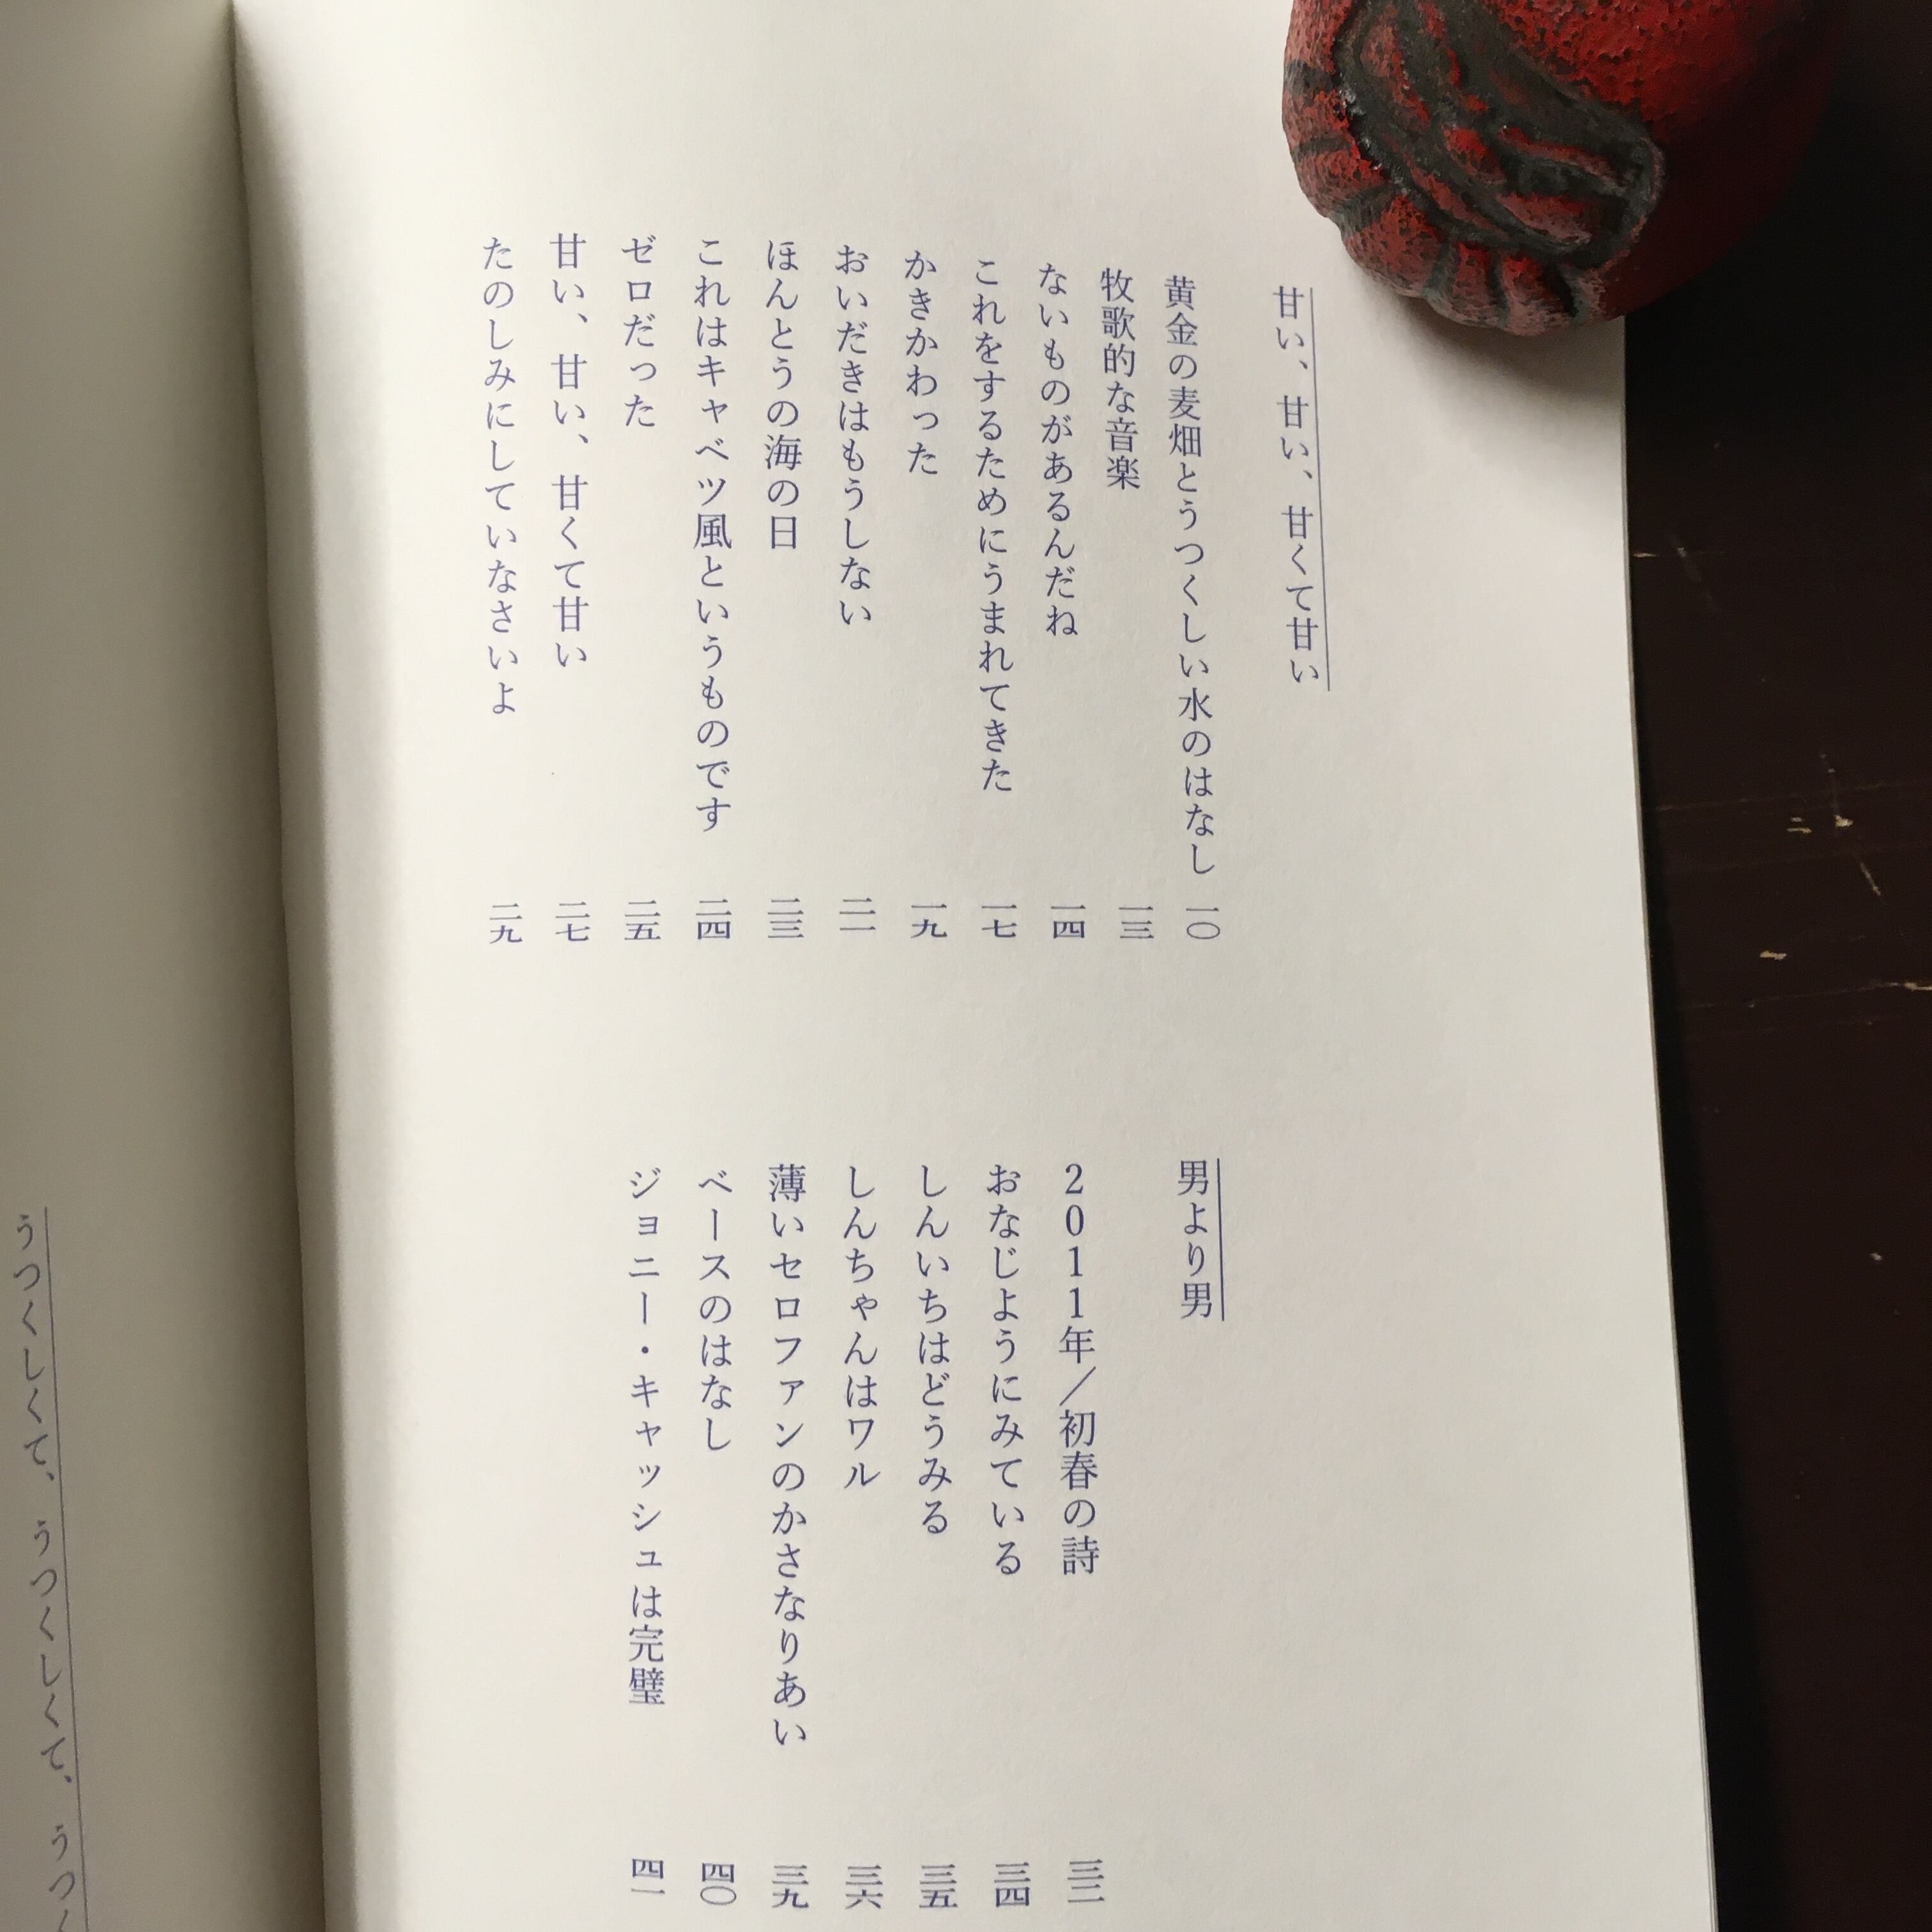 甘い、甘い、甘くて甘い
黄金の麦畑とうつくしい水のはなし 一〇
牧歌的な音楽 一三
ないものがあるんだね 一四
これをするためにうまれてきた 一七
かきかわった 一九
おいだきはもうしない 二一
ほんとうの海の日 二三
これはキャベツ風というものです 二四
ゼロだった 二五
甘い、甘い、甘くて甘い 二七
たのしみにしていなさいよ 二九
男より男
2011年／初春の詩 三二
おなじようにみている 三四
しんいちはどうみる 三五
しんちゃんはワル 三六
薄いセロファンのかさなりあい 三九
ベースのはなし 四〇
ジョニー・キャッシュは完璧 四一
うつくしくて、うつくしくて、うつく